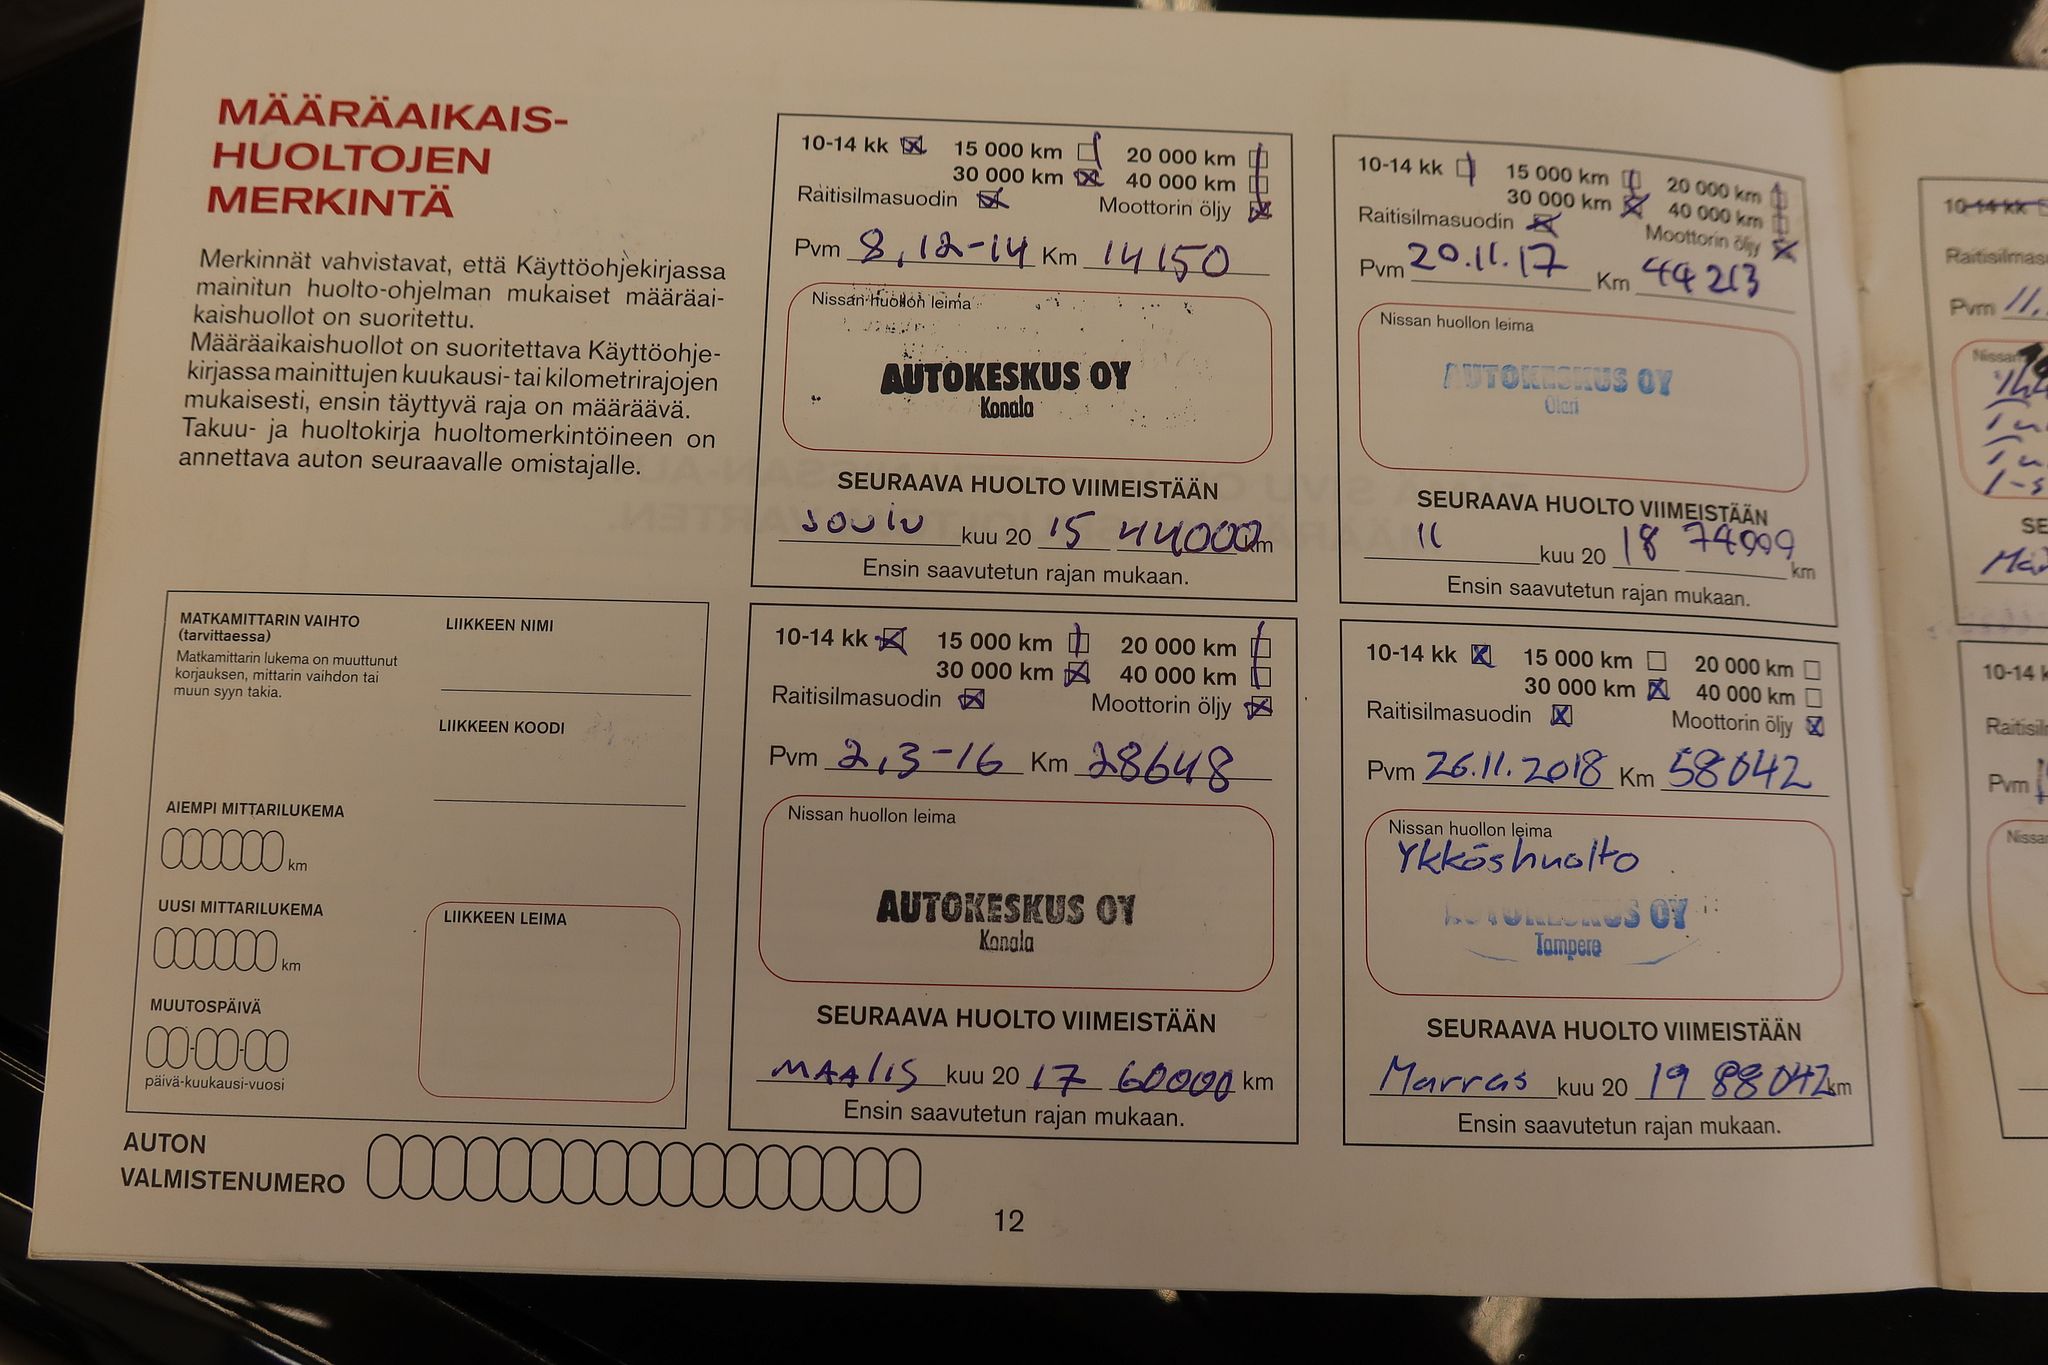 MÄÄRÄAIKAIS-
HUOLTOJEN
MERKINTÄ
Merkinnät vahvistavat, että Käyttöohjekirjassa
mainitun huolto-ohjelman mukaiset määräai-
kaishuollot on suoritettu.
Määräaikaishuollot on suoritettava Käyttöohje-
kirjassa mainittujen kuukausi- tai kilometrirajojen
mukaisesti, ensin täyttyvä raja on määräävä.
Takuu- ja huoltokirja huoltomerkintöineen on
annettava auton seuraavalle omistajalle.
MATKAMITTARIN VAIHTO
(tarvittaessa)
Matkamittarin lukema on muuttunut
korjauksen, mittarin vaihdon tai
muun syyn takia.
LIIKKEEN NIMI
LIIKKEEN KOODI
AIEMPI MITTARILUKEMA
km
UUSI MITTARILUKEMA
km
MUUTOSPÄIVÄ
päivä-kuukausi-vuosi
LIIKKEEN LEIMA
AUTON
VALMISTENUMERO
10-14 kk 15 000 km 20 000 km
30 000 km 40 000 km
Raitisilmasuodin Moottorin öljy
Pvm 8,12-14 Km 14150
Nissan huollon leima
AUTOKESKUS OY
Konala
SEURAAVA HUOLTO VIIMEISTÄÄN
Joulu kuu 20 15 44000 km
Ensin saavutetun rajan mukaan.
10-14 kk 15 000 km 20 000 km
30 000 km 40 000 km
Raitisilmasuodin Moottorin öljy
Pvm 2,3-16 Km 28648
Nissan huollon leima
AUTOKESKUS OY
Konala
SEURAAVA HUOLTO VIIMEISTÄÄN
MAAlis kuu 20 17 60000 km
Ensin saavutetun rajan mukaan.
10-14 kk 15 000 km 20 000 km
30 000 km 40 000 km
Raitisilmasuodin Moottorin öljy
Pvm 20.11.17 Km 44213
Nissan huollon leima
AUTOKESKUS OY
Olari
SEURAAVA HUOLTO VIIMEISTÄÄN
11 kuu 20 18 74999 km
Ensin saavutetun rajan mukaan.
10-14 kk 15 000 km 20 000 km
30 000 km 40 000 km
Raitisilmasuodin Moottorin öljy
Pvm 26.11.2018 Km 58042
Nissan huollon leima
Ykköshuolto
AUTOKESKUS OY
Tampere
SEURAAVA HUOLTO VIIMEISTÄÄN
Marras kuu 20 19 88042 km
Ensin saavutetun rajan mukaan.
12
10-14 kk
Pvm 11.
10-14
Pvm